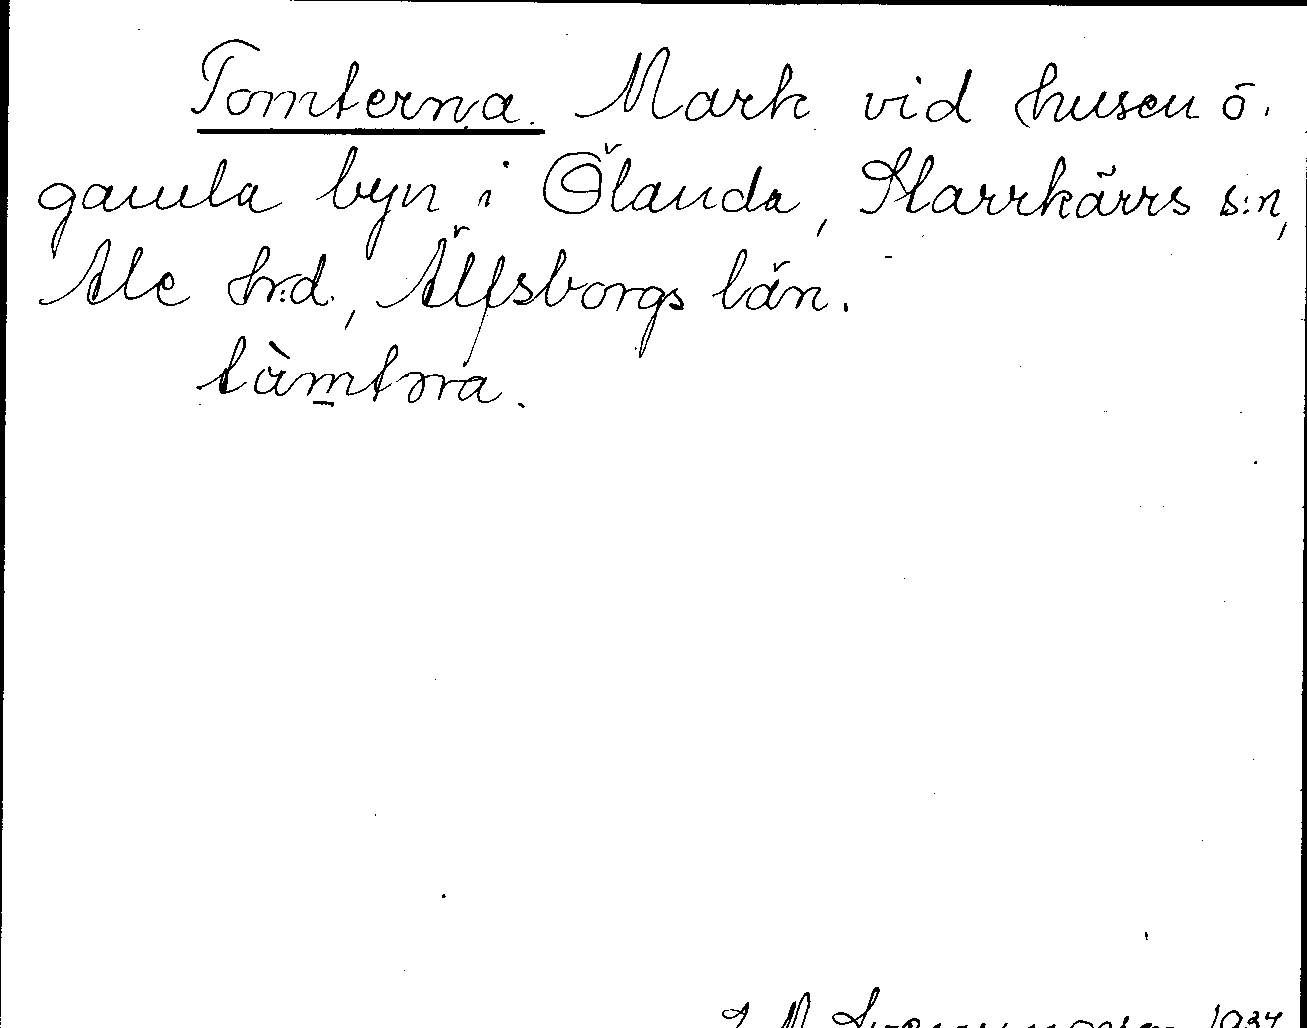 Tomterna. Mark vid husen ö.
gamla byn i Ölanda, Starrkärrs s:n,
Ale hrd., Älfsborgs län.
tàm̲təra.
1934